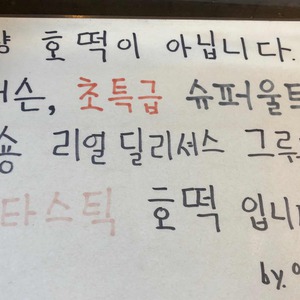 호떡이 아닙니다.
초특급 슈퍼울트
숑 리얼 딜리셔스 그루
타스틱 호떡 입니
by.